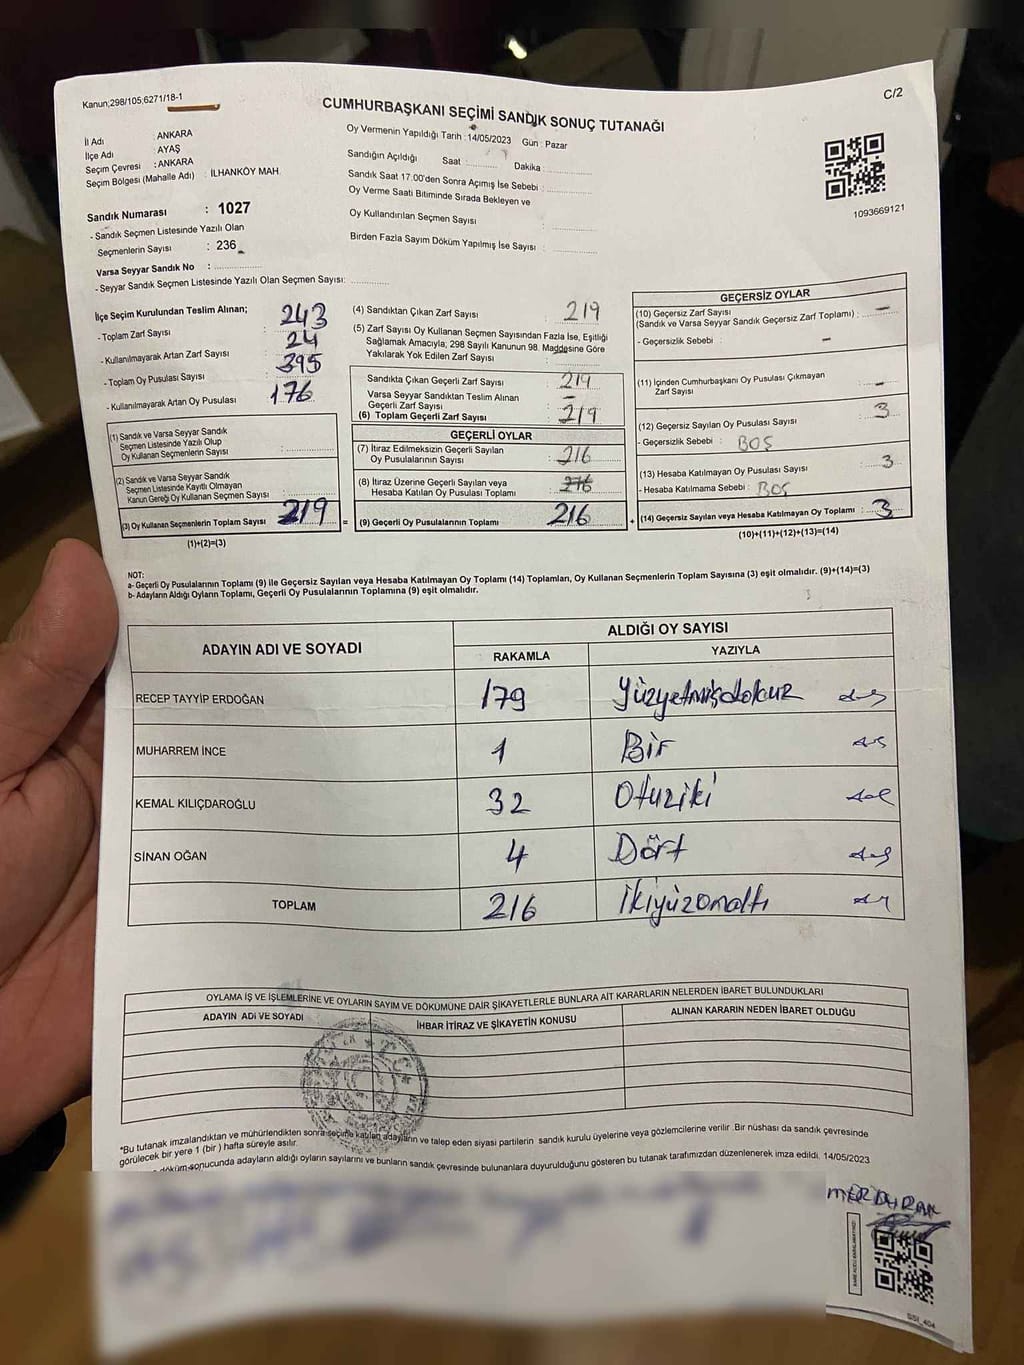 Kanun;298/105;6271/18-1
C/2
CUMHURBAŞKANI SEÇİMİ SANDIK SONUÇ TUTANAĞI
İl Adı : ANKARA
İlçe Adı : AYAŞ
Seçim Çevresi : ANKARA
Seçim Bölgesi (Mahalle Adı) : İLHANKÖY MAH.
Sandık Numarası : 1027
- Sandık Seçmen Listesinde Yazılı Olan
Seçmenlerin Sayısı : 236
Varsa Seyyar Sandık No :
- Seyyar Sandık Seçmen Listesinde Yazılı Olan Seçmen Sayısı:
Oy Vermenin Yapıldığı Tarih : 14/05/2023 Gün : Pazar
Sandığın Açıldığı Saat : Dakika :
Sandık Saat 17.00'den Sonra Açımış İse Sebebi :
Oy Verme Saati Bitiminde Sırada Bekleyen ve
Oy Kullandırılan Seçmen Sayısı :
Birden Fazla Sayım Döküm Yapılmış İse Sayısı :
1093669121
İlçe Seçim Kurulundan Teslim Alınan;
- Toplam Zarf Sayısı : 243
- Kullanılmayarak Artan Zarf Sayısı : 24
- Toplam Oy Pusulası Sayısı : 395
- Kullanılmayarak Artan Oy Pusulası : 176
(1) Sandık ve Varsa Seyyar Sandık
Seçmen Listesinde Yazılı Olup
Oy Kullanan Seçmenlerin Sayısı :
(2) Sandık ve Varsa Seyyar Sandık
Seçmen Listesinde Kayıtlı Olmayan
Kanun Gereği Oy Kullanan Seçmen Sayısı :
(3) Oy Kullanan Seçmenlerin Toplam Sayısı : 219 =
(1)+(2)=(3)
(4) Sandıktan Çıkan Zarf Sayısı : 219
(5) Zarf Sayısı Oy Kullanan Seçmen Sayısından Fazla İse, Eşitliği
Sağlamak Amacıyla, 298 Sayılı Kanunun 98. Maddesine Göre
Yakılarak Yok Edilen Zarf Sayısı :
Sandıkta Çıkan Geçerli Zarf Sayısı : 219
Varsa Seyyar Sandıktan Teslim Alınan
Geçerli Zarf Sayısı : -
(6) Toplam Geçerli Zarf Sayısı : 219
GEÇERLİ OYLAR
(7) İtiraz Edilmeksizin Geçerli Sayılan
Oy Pusulalarının Sayısı : 216
(8) İtiraz Üzerine Geçerli Sayılan veya
Hesaba Katılan Oy Pusulası Toplamı : 216
(9) Geçerli Oy Pusulalarının Toplamı : 216 +
GEÇERSİZ OYLAR
(10) Geçersiz Zarf Sayısı
(Sandık ve Varsa Seyyar Sandık Geçersiz Zarf Toplamı) : -
- Geçersizlik Sebebi : -
(11) İçinden Cumhurbaşkanı Oy Pusulası Çıkmayan
Zarf Sayısı : -
(12) Geçersiz Sayılan Oy Pusulası Sayısı : 3
- Geçersizlik Sebebi : BOŞ
(13) Hesaba Katılmayan Oy Pusulası Sayısı : 3
- Hesaba Katılmama Sebebi : BOŞ
(14) Geçersiz Sayılan veya Hesaba Katılmayan Oy Toplamı : 3
(10)+(11)+(12)+(13)=(14)
NOT:
a- Geçerli Oy Pusulalarının Toplamı (9) ile Geçersiz Sayılan veya Hesaba Katılmayan Oy Toplamı (14) Toplamları, Oy Kullanan Seçmenlerin Toplam Sayısına (3) eşit olmalıdır. (9)+(14)=(3)
b- Adayların Aldığı Oyların Toplamı, Geçerli Oy Pusulalarının Toplamına (9) eşit olmalıdır.
ADAYIN ADI VE SOYADI
ALDIĞI OY SAYISI
RAKAMLA YAZIYLA
RECEP TAYYİP ERDOĞAN 179 Yüzyetmişdokuz
MUHARREM İNCE 1 Bir
KEMAL KILIÇDAROĞLU 32 Otuziki
SİNAN OĞAN 4 Dört
TOPLAM 216 İkiyüzonaltı
OYLAMA İŞ VE İŞLEMLERİNE VE OYLARIN SAYIM VE DÖKÜMÜNE DAİR ŞİKAYETLERLE BUNLARA AİT KARARLARIN NELERDEN İBARET BULUNDUKLARI
ADAYIN ADI VE SOYADI İHBAR İTİRAZ VE ŞİKAYETİN KONUSU ALINAN KARARIN NEDEN İBARET OLDUĞU
*Bu tutanak imzalandıktan ve mühürlendikten sonra seçime katılan adayların ve talep eden siyasi partilerin sandık kurulu üyelerine veya gözlemcilerine verilir .Bir nüshası da sandık çevresinde
görülecek bir yere 1 (bir ) hafta süreyle asılır.
döküm sonucunda adayların aldığı oyların sayılarını ve bunların sandık çevresinde bulunanlara duyurulduğunu gösteren bu tutanak tarafımızdan düzenlenerek imza edildi. 14/05/2023